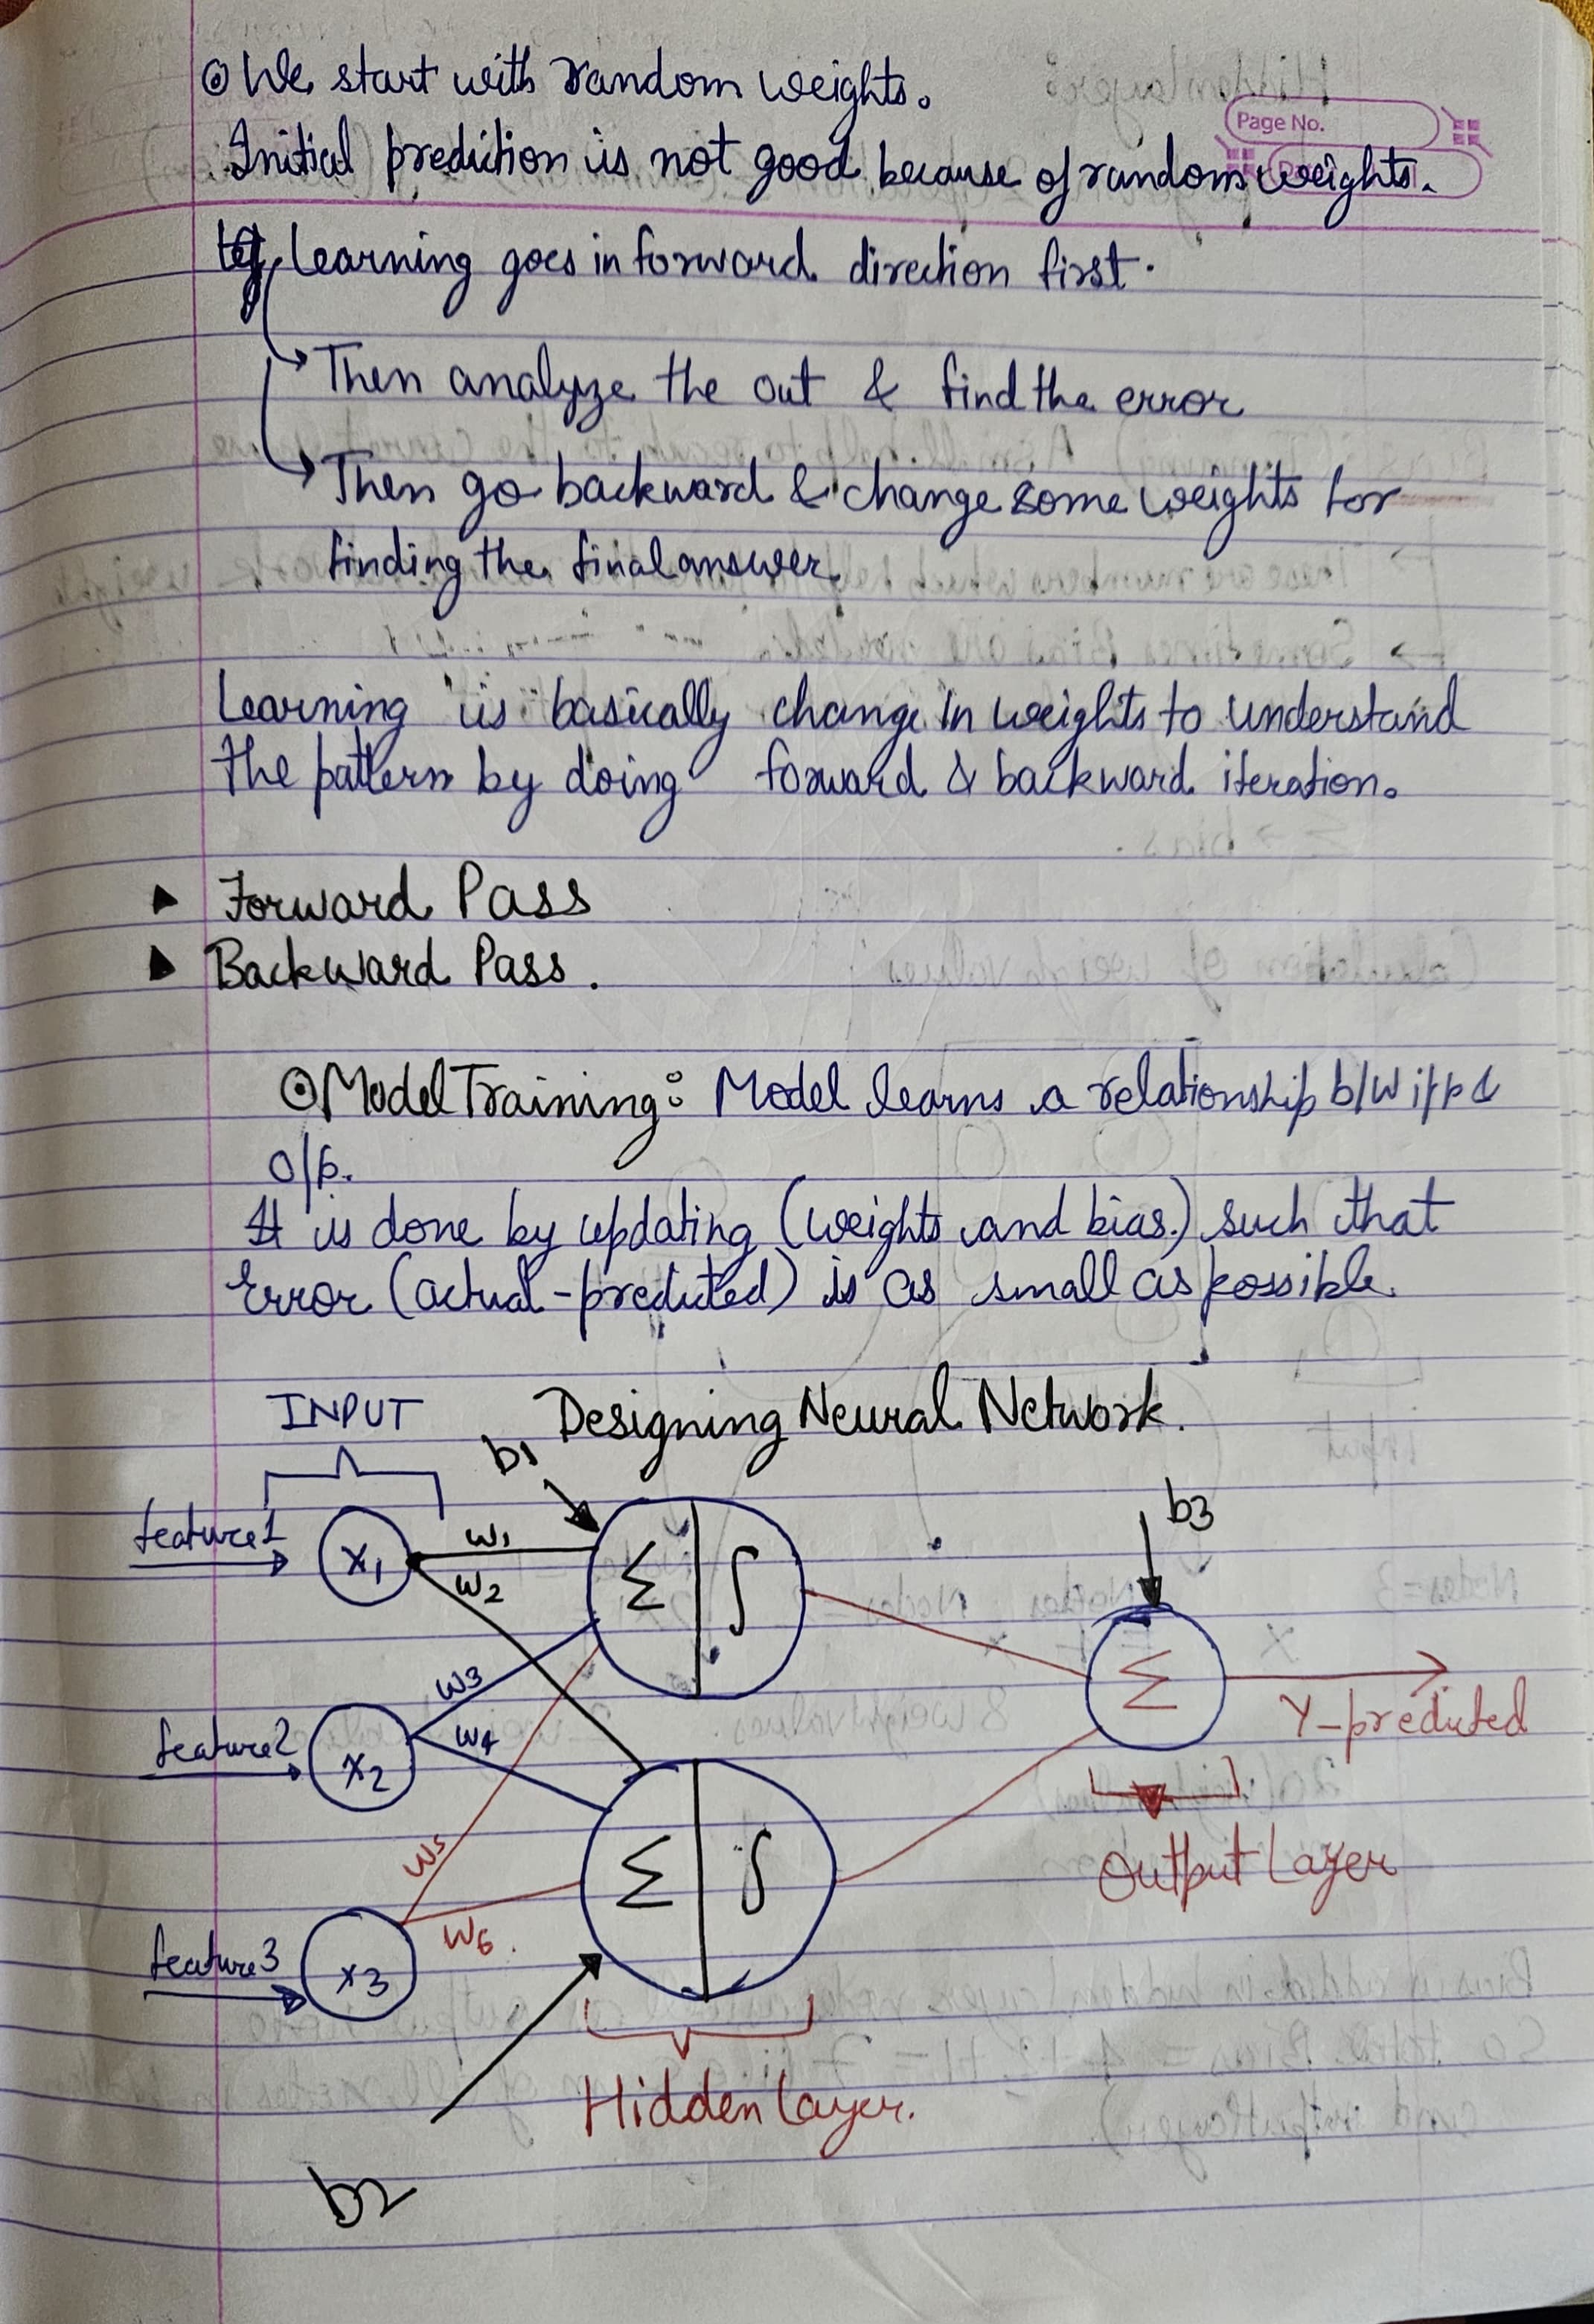 We start with random weights.
Page No.
Initial prediction is not good because of random weights.
learning goes in forward direction first.
Then analyze the out & find the error
Then go backward & change some weights for
finding the final answer
Learning is basically change in weights to understand
the pattern by doing forward & backward iteration.
Forward Pass
Backward Pass.
Model Training: Model learns a relationship b/w i/p &
o/p.
It is done by updating (weights and bias) such that
Error (actual-predicted) is as small as possible.
INPUT
Designing Neural Network.
b1
b3
feature1
x1
w1
w2
Σ ∫
w3
Σ
Y-predicted
feature2
x2
w4
Output Layer
w5
Σ ∫
w6.
feature3
x3
Hidden Layer.
b2